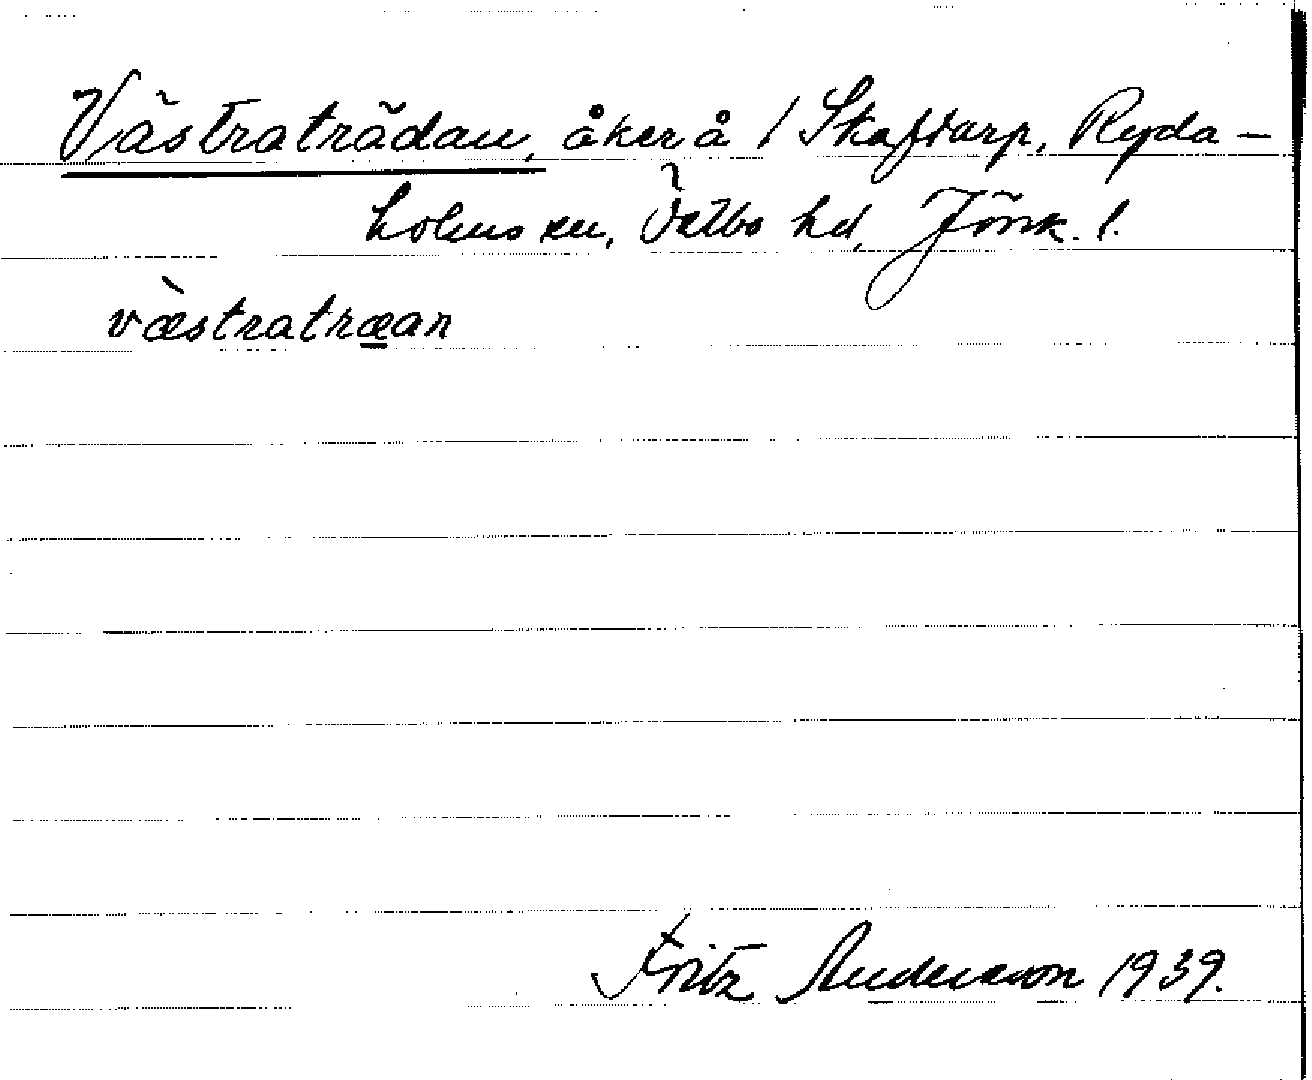 Västraträdan, åker å 1 Skaftarp, Ryda-
holms sn, Östbo hd, Jönk. l.
væ̀stratræan
Fritz Andersson 1939.